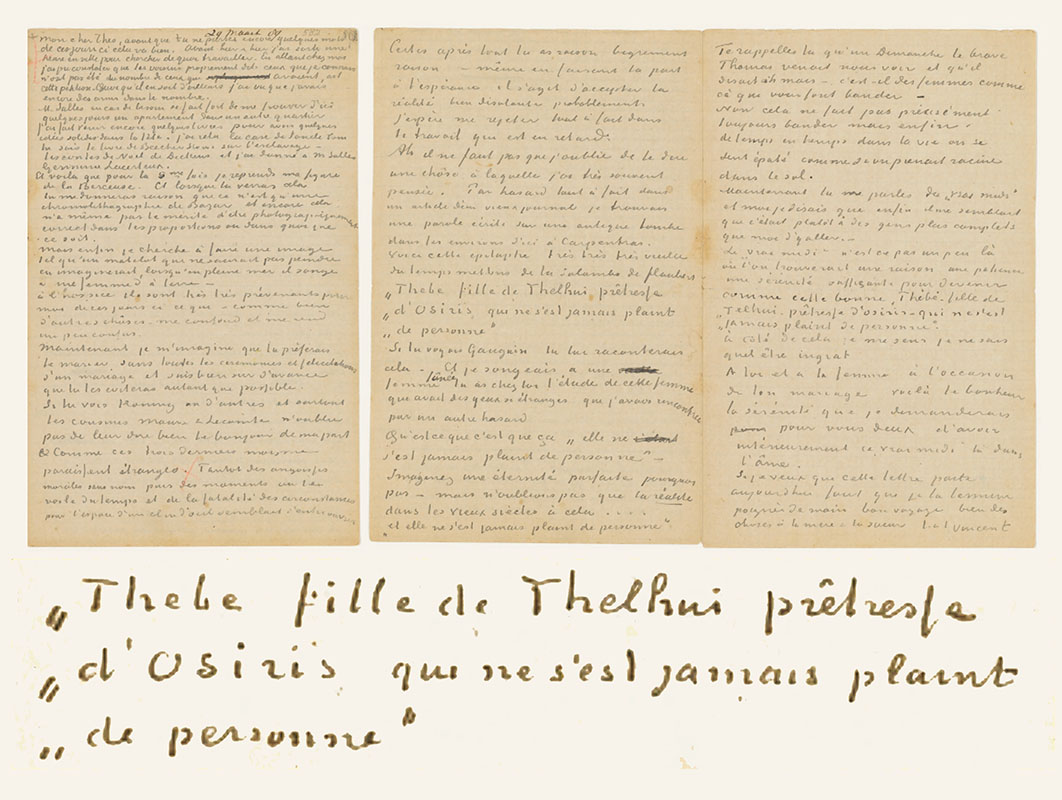 29 Maart 89
mon cher Theo, avant que tu ne partes encore quelques mots
de ces jours ci cela va bien. Avant hier & hier j'ai sorti une
heure en ville pour chercher de quoi travailler. En allant chez moi
j'ai pu constater que les voisins proprement dit ceux que je connais
n'ont pas été du nombre de ceux que avaient fait
cette pétition. Quoi qu'il en soit d'ailleurs j'ai vu que j'avais
encore des amis dans le nombre.
M. Salles en cas de besoin se fait fort de me trouver d'ici
quelques jours un apartement dans un autre quartier
j'ai fait venir encore quelques livres pour avoir quelques
idées solides dans la tête. j'ai relu la case de l'oncle Tom
tu sais le livre de Beecher Stowe sur l'esclavage —
les contes de Noel de Dickens et j'ai donné à M. Salles
Germinie Lacerteux.
Et voilà que pour la 5me fois je reprends ma figure
de la Berceuse. Et lorsque tu verras cela
tu me donneras raison que ce n'est qu'une
chromolithographie de bazar et encore cela
n'a même pas le mérite d'être photographiquement
correct dans les proportions ou dans quoi que
ce soit.
Mais enfin je cherche à faire une image
tel qu'un matelot qui ne saurait pas peindre
en imaginerait lorsqu'en pleine mer il songe
à une femme d'à terre —
à l'hospice ils sont très très prévenants pour
moi de ces jours ci ce qui — comme bien
d'autres chôses — me confond et me rend
un peu confus.
Maintenant je m'imagine que tu préferais
te marier sans toutes les cérémonies et félicitations
d'un mariage et suis bien sur d'avance
que tu les eviteras autant que possible.
Si tu vois Koning ou d'autres et surtout
les cousines Mauve & Lecomte n'oublie
pas de leur dire bien le bonjour de ma part
& Comme ces trois derniers mois me
paraissent étranges. Tantot des angoisses
morales sans nom puis des moments où le
voile du temps et de la fatalité des circonstances
pour l'espace d'un clin d'oeil semblait s'entrouvrir
Certes après tout tu as raison bigrement
raison — même en faisant la part
à l'espérance il s'agit d'accepter la
réalité bien désolante probablement.
j'espère me rejeter tout à fait dans
le travail qui est en retard.
Ah il ne faut pas que j'oublie de te dire
une chôse à laquelle j'ai très souvent
pensée. Par hasard tout à fait dans
un article d'un vieux journal je trouvais
une parole écrite sur une antique tombe
dans les environs d'ici à Carpentras.
Voici cette epitaphe très très très vieille
du temps mettons de la Salambo de flaubert
„Thebe fille de Thelhui prêtresse
„d'Osiris qui ne s'est jamais plaint
„de personne"
Si tu voyais Gauguin tu lui raconterais
cela — Et je songeais à une
femme fanée tu as chez toi l'étude de cette femme
que avait des yeux si étranges que j'avais rencontrée
par un autre hasard
Qu'est ce que c'est que ça „elle ne
s'est jamais plaint de personne" —
Imaginez une éternité parfaite pourquoi
pas — mais n'oublions pas que la réalité
dans les vieux siècles a cela ....
„et elle ne s'est jamais plaint de personne".
Te rappelles tu qu'un Dimanche le brave
Thomas venait nous voir et qu'il
disait ah mais — c'est il des femmes comme
cà que vous font bander —
non cela ne fait pas précisément
toujours bander mais enfin —
de temps en temps dans la vie on se
sent épaté comme si on prenait racine
dans le sol.
Maintenant tu me parles du „vrai midi"
et moi je disais que enfin il me semblait
que c'était plutôt à des gens plus complets
que moi d'y aller. —
Le „vrai midi" n'est ce pas un peu là
où l'on trouverait une raison une patience
une sérénité suffisante pour devenir
comme cette bonne „Thébé fille de
„Telhui prêtresse d'Osiris — qui ne s'est
„jamais plaint de personne".
à coté de cela je me sens je ne sais
quel être ingrat
A toi et à ta femme à l'occasion
de ton mariage voilà le bonheur
la sérénité que je demanderais
pour vous deux d'avoir
intérieurement ce vrai midi là dans
l'âme.
Si je veux que cette lettre parte
aujourd'hui faut que je la termine
poignée de main bon voyage bien des
choses à la mère & la soeur t. à t. Vincent
„Thebe fille de Thelhui prêtresse
„d'Osiris qui ne s'est jamais plaint
„de personne"